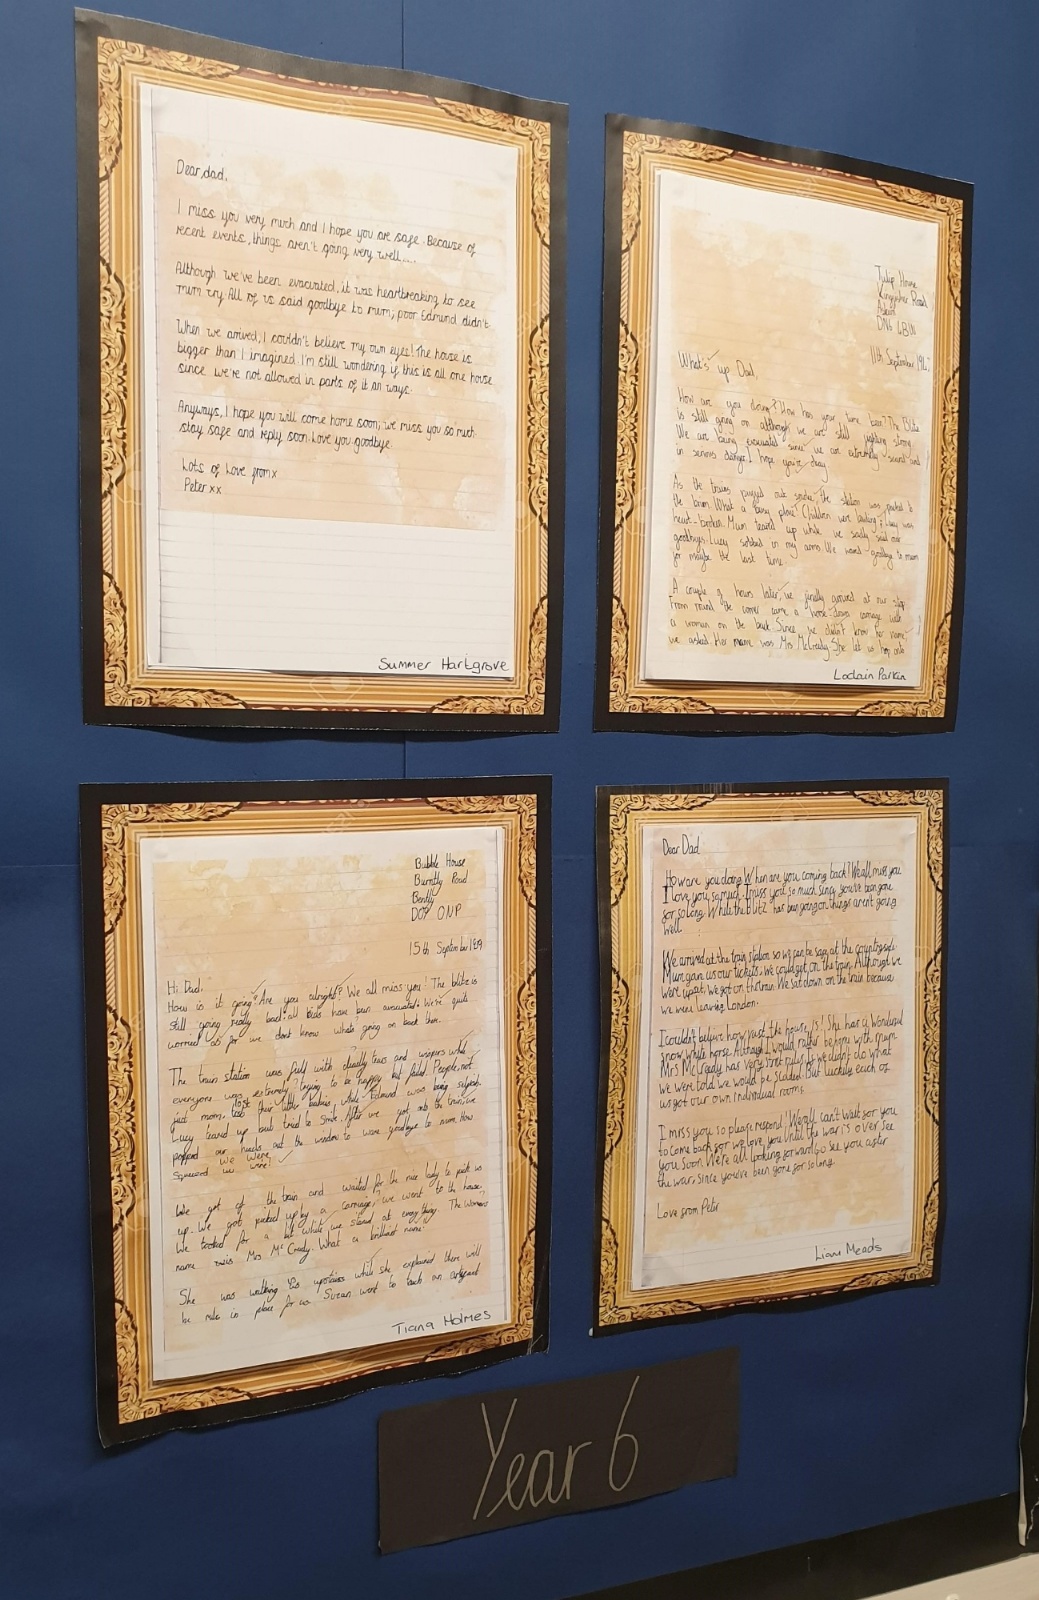 Dear, dad,
I miss you very much and I hope you are safe. Because of
recent events, things aren't going very well.....
Although we've been evacuated, it was heartbreaking to see
mum cry. All of us said goodbye to mum; poor Edmund didn't.
When we arrived, I couldn't believe my own eyes! The house is
bigger than I imagined. I'm still wondering if this is all one house
since we're not allowed in parts of it an ways.
Anyways, I hope you will come home soon; we miss you so much.
stay safe and reply soon. Love you, goodbye.
Lots of Love from x
Peter xx
Summer Hartgrove
Tulip House
Kingfisher Road
DN6
11th September 19
What's up Dad,
How are you doing? How has your time been? The Blitz
is still going on although we are still fighting strong.
We are being evacuated since we are extremely scared and
in serious danger. I hope you're okay.
As the trains pugged out smoke, the station was packed to
the brim. What a busy place! Children were bawling; they was
heart-broken. Mum teared up while we sadly said our
goodbyes. Lucy sobbed in my arms. We waved goodbye to mum
for maybe the last time.
A couple of hours later, we finally arrived at our stop.
From round the corner came a horse-drawn carriage with
a woman on the back. Since we didn't know her name,
we asked. Her name was Mrs McCready. She let us hop onto
Parkin
Bubble House
Burntly Road
Bently
ONP
15th September
Hi Dad,
How is it going? Are you alright? We all miss you! The blitz is
still going really bad: all kids have been evacuated. We're quite
worried as for we dont know whats going on back there.
The train station was full with deadly tears and wispers while
everyone was extremely trying to be happy but failed. People, not
just mom, lost their little babies, while Edmund was being selfish.
Lucy teared up but tried to smile. After we got into the train, we
popped our heads out the window to wave goodbye to mum. How
Squezed we were!
We got of the train and waited for the nice lady to pick us
up. We got picked up by a carriage; we went to the house.
We looked for a bit while we stared at everything. The Womens
name was Mrs McCredy. What a brilliant name!
She was walking us upstairs while she explained there will
be rule in place for us. Suzan went to touch an
Tiana Holmes
Dear Dad
How are you doing. When are you coming back? We all miss you
I love you so much. I miss you so much since you've been gone
for so long. While the BlitZ has been going on things arent going
well.
We arrived at the train station so we can be safe at the countryside.
Mum gave us our tickets. We could get on the train. Although we
were upset. We got on the train. We sat down on the train because
we were leaving London.
I couldn't believe how vast the house is! She has a wonderful
snow white horse. Although I would rather be home with mum
Mrs McCready has very strict rules. If we didnt do what
we were told we would be But luckily each of
us get our own individual rooms.
I miss you so please respond! We all can't wait for you
to come back for we love you. Until the war is over see
you soon. We're all looking forward to see you after
the war, since you've been gone for so long.
Love from Peter
Liam Meads
Year 6